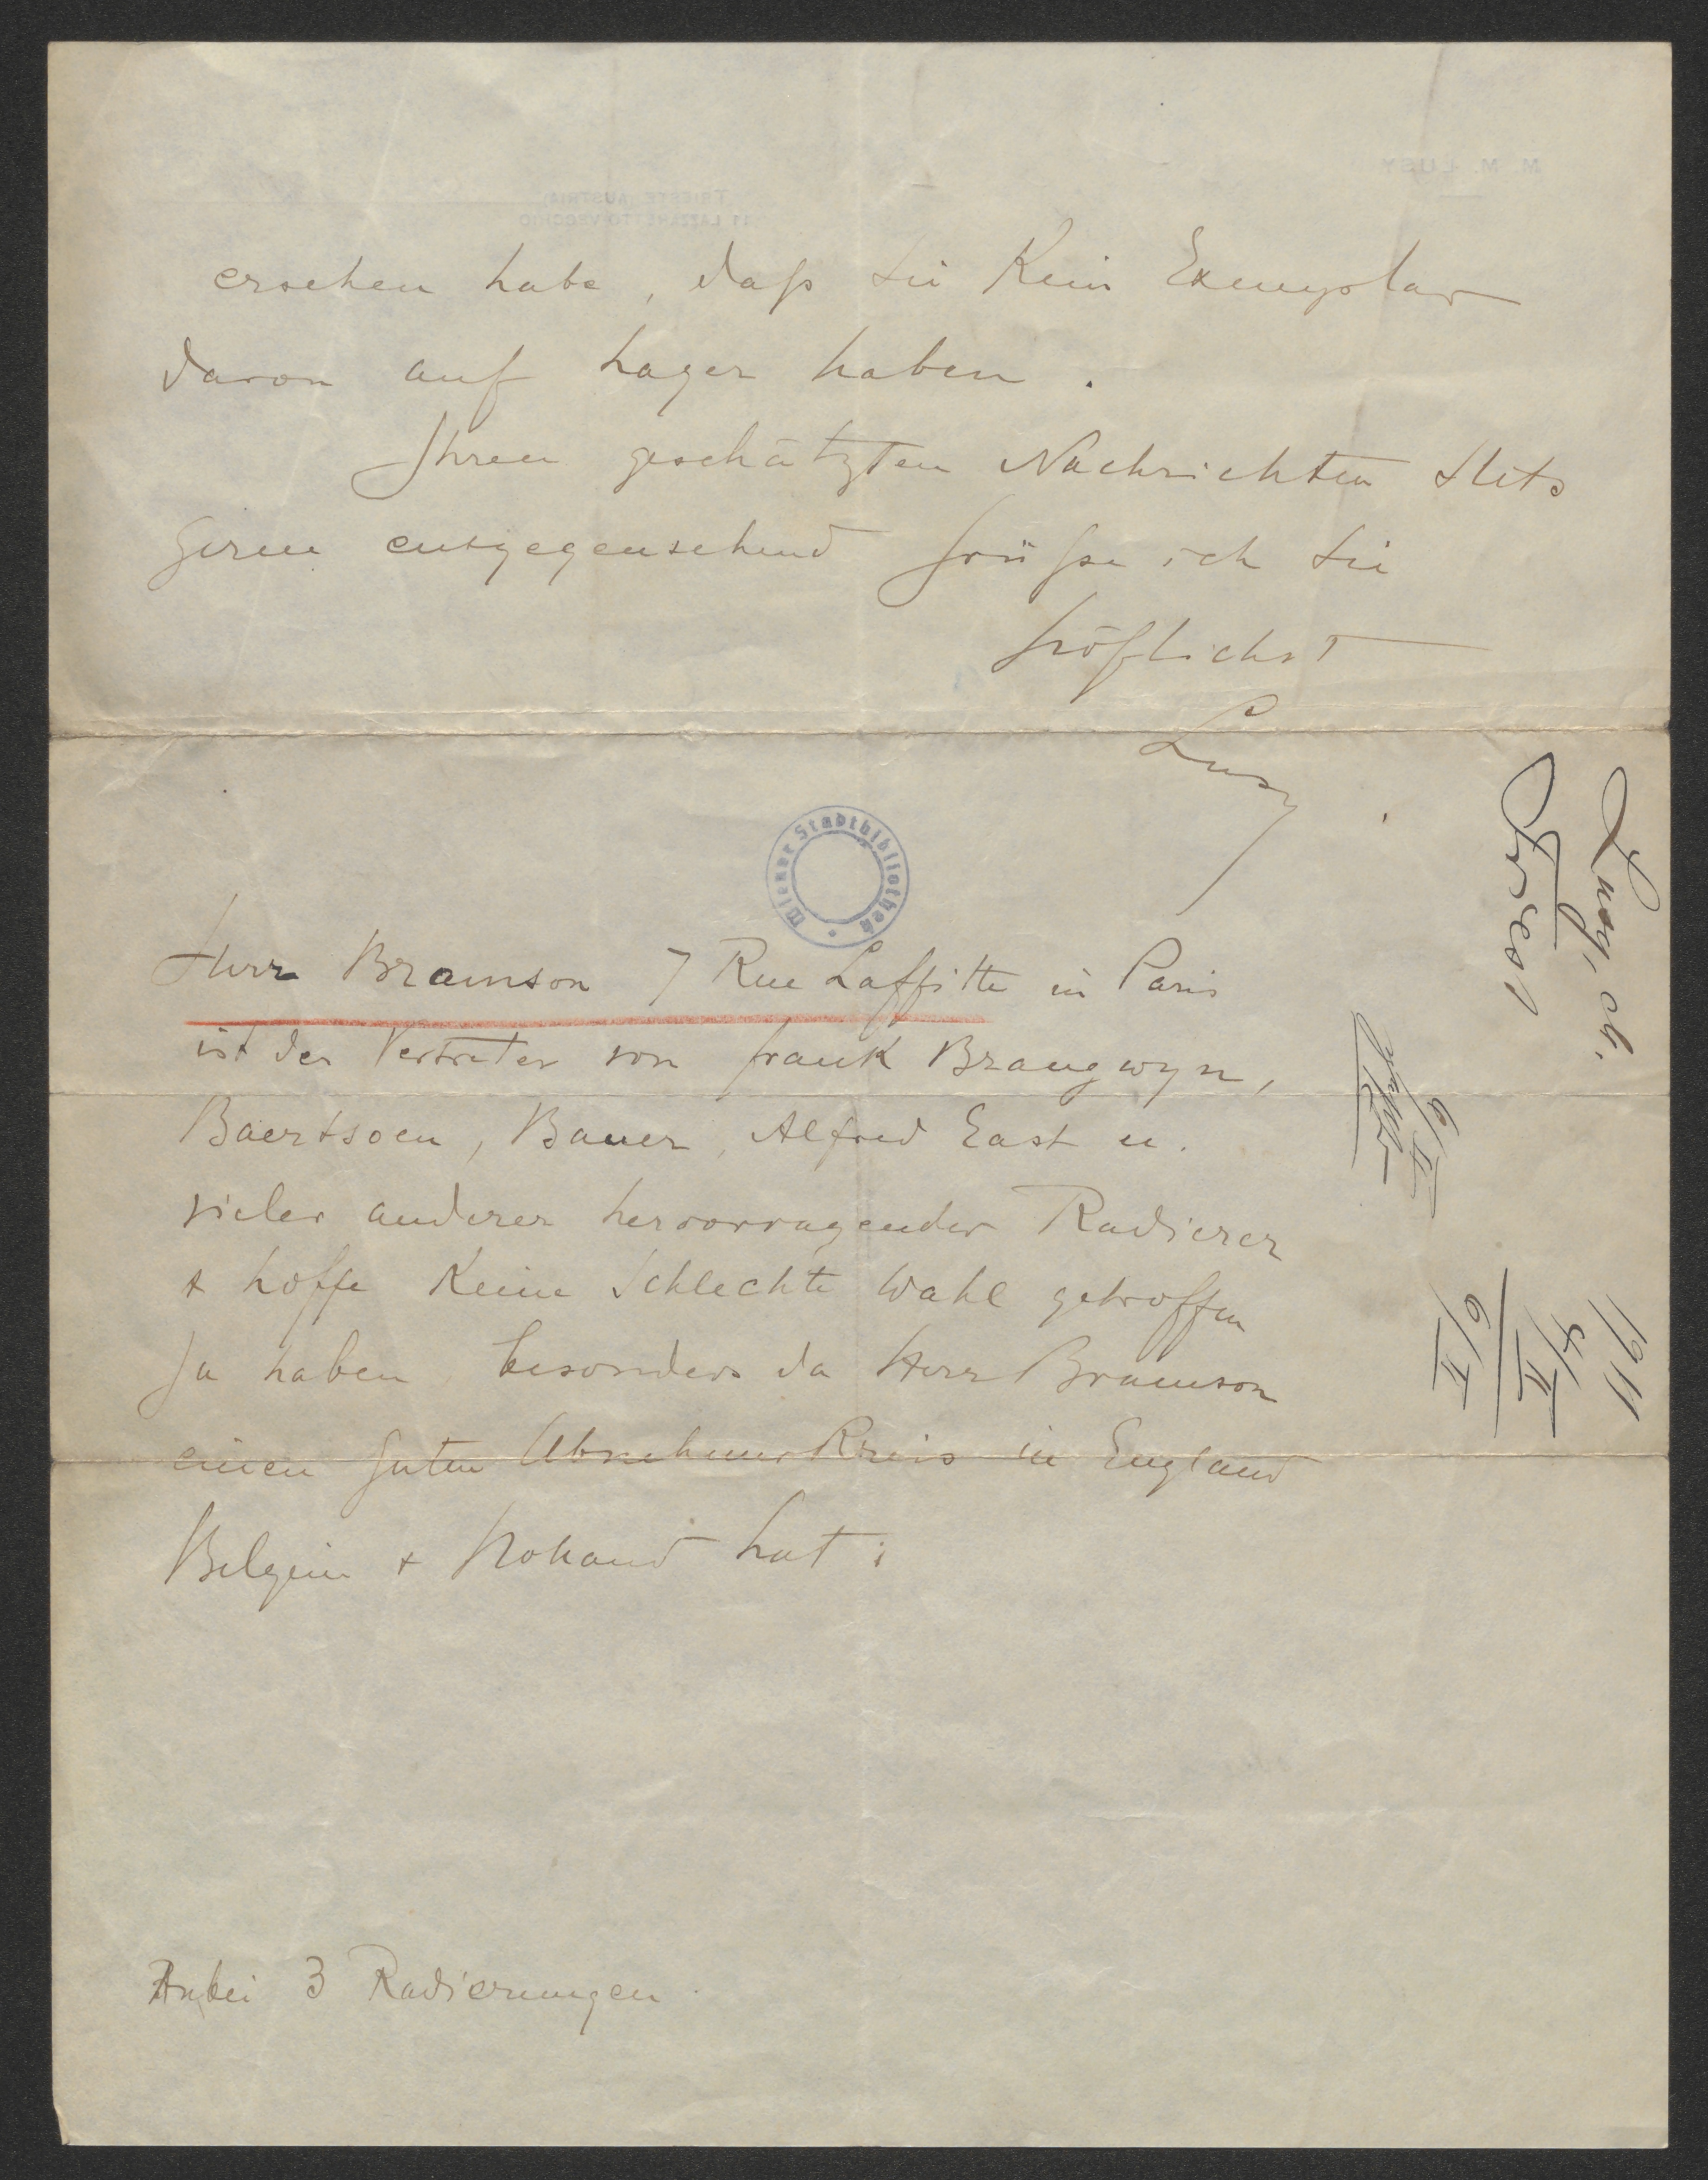 ersehen habe, daß Sie Kein Exemplar
davon auf Lager haben.
Ihren geschätzten Nachrichten stets
gerne entgegensehend grüße ich Sie
höflichst
Lusy
Wiener Stadtbibliothek
Herr Bramson 7 Rue Laffitte in Paris
ist der Vertreter von Frank Brangwyn,
Baertsoen, Bauer, Alfred East u.
vieler anderer hervorragender Radierer
+ hoffe Keine Schlechte Wahl getroffen
zu haben, besonders da Herr Bramson
einen guten AbnehmerKreis in England
Belgien + Holland hat.
Anbei 3 Radierungen.
Lusy, ch.
Triest
6/II
1911
4/II
6/II
M. M. LUSY
TRIESTE (AUSTRIA)
11 LAZZARETTO VECCHIO